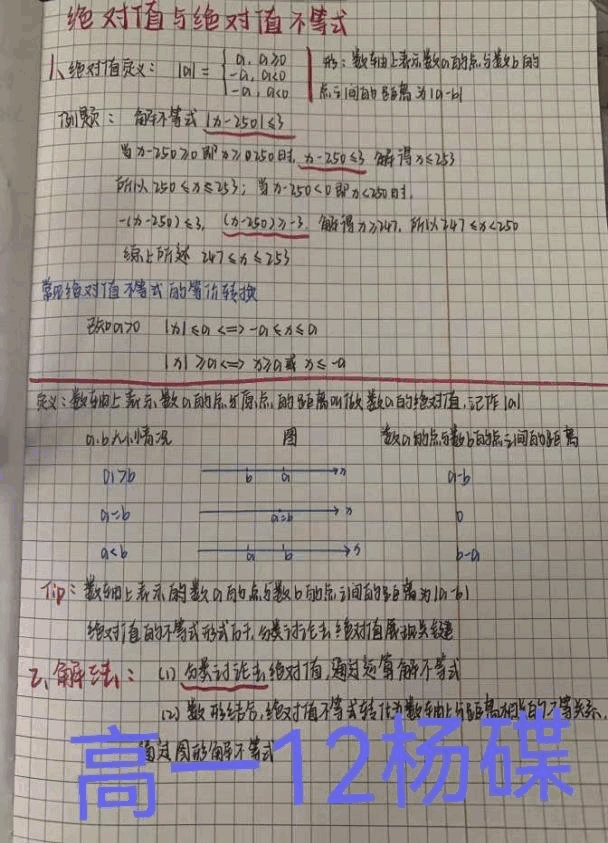 绝对值与绝对值不等式
1、绝对值定义： |a| = { a, a≥0 形：数轴上表示数a的点与数b的
-a, a<0
-a, a<0 点之间的距离为|a-b|
例题： 解不等式 |x-250|≤3
当x-250≥0即x≥0250时, x-250≤3 解得x≤253
所以 250≤x≤253；当x-250<0即x<250时.
-(x-250)≤3, (x-250)≥-3 解得x≥247, 所以247≤x<250
综上所述 247≤x≤253
常见绝对值不等式的等价转换
已知a>0 |x|≤a <=> -a≤x≤a
|x|≥a <=> x≥a或 x≤-a
定义：数轴上表示数a的点与原点的距离叫做数a的绝对值，记作|a|
a.b大小情况 图 数a的点与数b的点之间的距离
a>b b a x a-b
a=b a=b x 0
a<b a b x b-a
Tip：数轴上表示的数a的点与数b的点之间的距离为|a-b|
绝对值的不等式形式下，分类讨论去绝对值是关键
2、解法： (1) 分类讨论去绝对值，通过运算解不等式
(2) 数形结合，绝对值不等式转化为数轴上与距离相关的不等关系，
通过图形解不等式
高一12杨碟